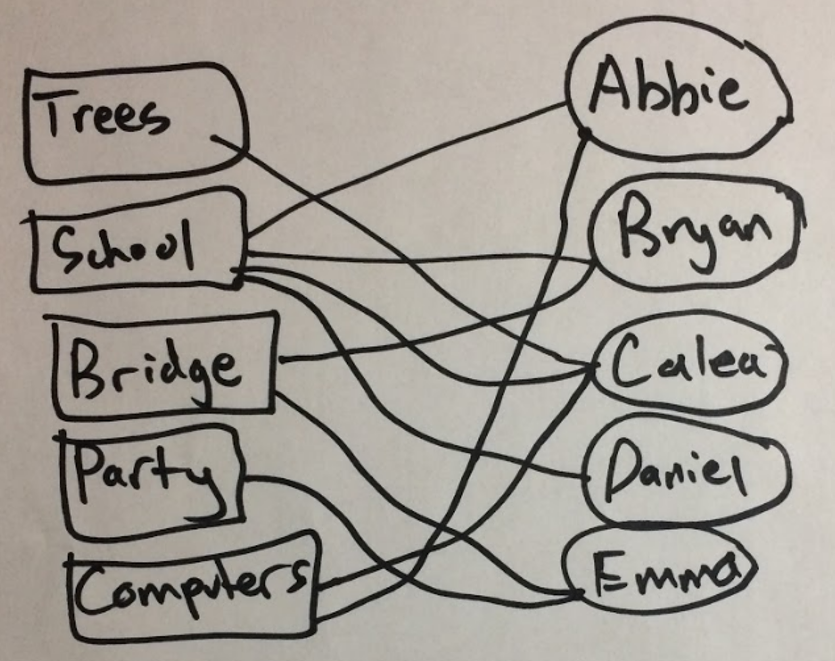 Trees
School
Bridge
Party
Computers
Abbie
Bryan
Calea
Daniel
Emma